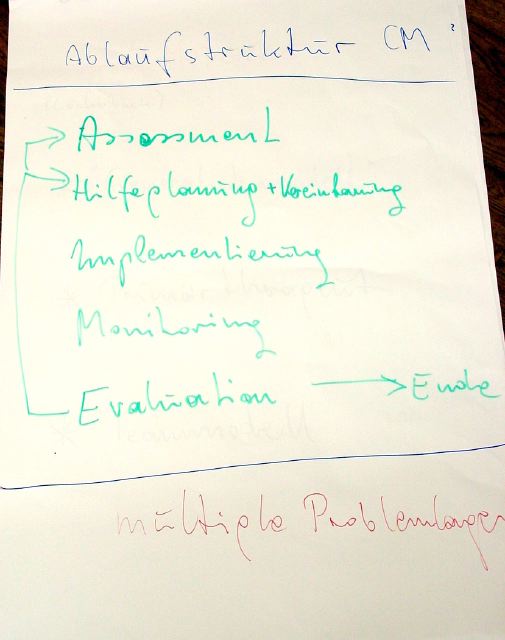 Ablaufstruktur CM ?
Assessment
Hilfeplanung + Vereinbarung
Implementierung
Monitoring
Evaluation → Ende
multiple Problemlagen